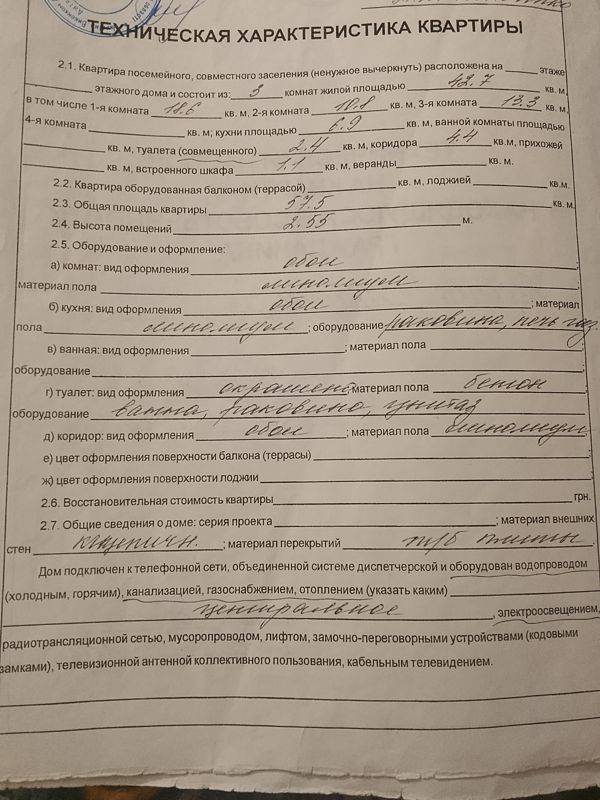 ТЕХНИЧЕСКАЯ ХАРАКТЕРИСТИКА КВАРТИРЫ
2.1. Квартира посемейного, совместного заселения (ненужное вычеркнуть) расположена на ______ этаже
______ этажного дома и состоит из: 3 комнат жилой площадью 42.7 кв. м,
в том числе 1-я комната 18.6 кв. м, 2-я комната 10.8 кв. м, 3-я комната 13.3 кв. м,
4-я комната ______ кв. м; кухни площадью 6.9 кв. м, ванной комнаты площадью
______ кв. м, туалета (совмещенного) 2.4 кв. м, коридора 4.4 кв.м, прихожей
______ кв. м, встроенного шкафа 1.1 кв. м, веранды ______ кв. м.
2.2. Квартира оборудованная балконом (террасой) ______ кв. м, лоджией ______ кв.м.
2.3. Общая площадь квартиры 57.5 кв. м.
2.4. Высота помещений 2.55 м.
2.5. Оборудование и оформление:
а) комнат: вид оформления обои ;
материал пола линолиум ;
б) кухня: вид оформления обои ; материал
пола линолиум ; оборудование раковина, печь газ.
в) ванная: вид оформления ______ ; материал пола ______ ;
оборудование ______
г) туалет: вид оформления окрашено ; материал пола бетон
оборудование ванна, раковина, унитаз
д) коридор: вид оформления обои ; материал пола линолиум
е) цвет оформления поверхности балкона (террасы) ______ ;
ж) цвет оформления поверхности лоджии ______
2.6. Восстановительная стоимость квартиры ______ грн.
2.7. Общие сведения о доме: серия проекта ______ ; материал внешних
стен кирпичн. ; материал перекрытий ж/б плиты
Дом подключен к телефонной сети, объединенной системе диспетчерской и оборудован водопроводом
(холодным, горячим), канализацией, газоснабжением, отоплением (указать каким)
центральное , электроосвещением,
радиотрансляционной сетью, мусоропроводом, лифтом, замочно-переговорными устройствами (кодовыми
замками), телевизионной антенной коллективного пользования, кабельным телевидением.